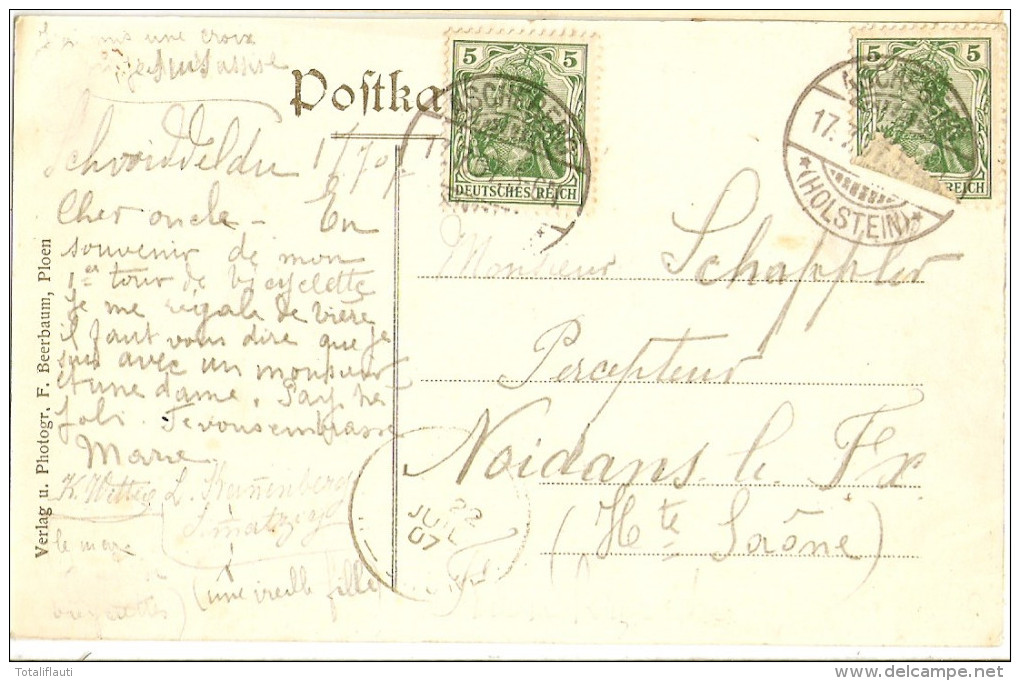 J'ai mis une croix
Postka
5
5
5
5
ASCHEBERG
DEUTSCHES REICH
ASCHEBERG
17.7.
REICH
*(HOLSTEIN)*
1/7 07
Cher oncle – En
souvenir de mon
1er tour de bicyclette
je me régale de bière
il faut vous dire que je
suis avec un monsieur
et une dame. Pays très
joli. Je vous embrasse
Marie
K. Wettig L. Kannenberg
le mari
(une vieille fille)
Monsieur Schappler
Percepteur
Noidans le Fx
(Hte Saône)
22
JUIL
07
Verlag u. Photogr. F. Beerbaum, Ploen
Totaliflauti
delcampe.net